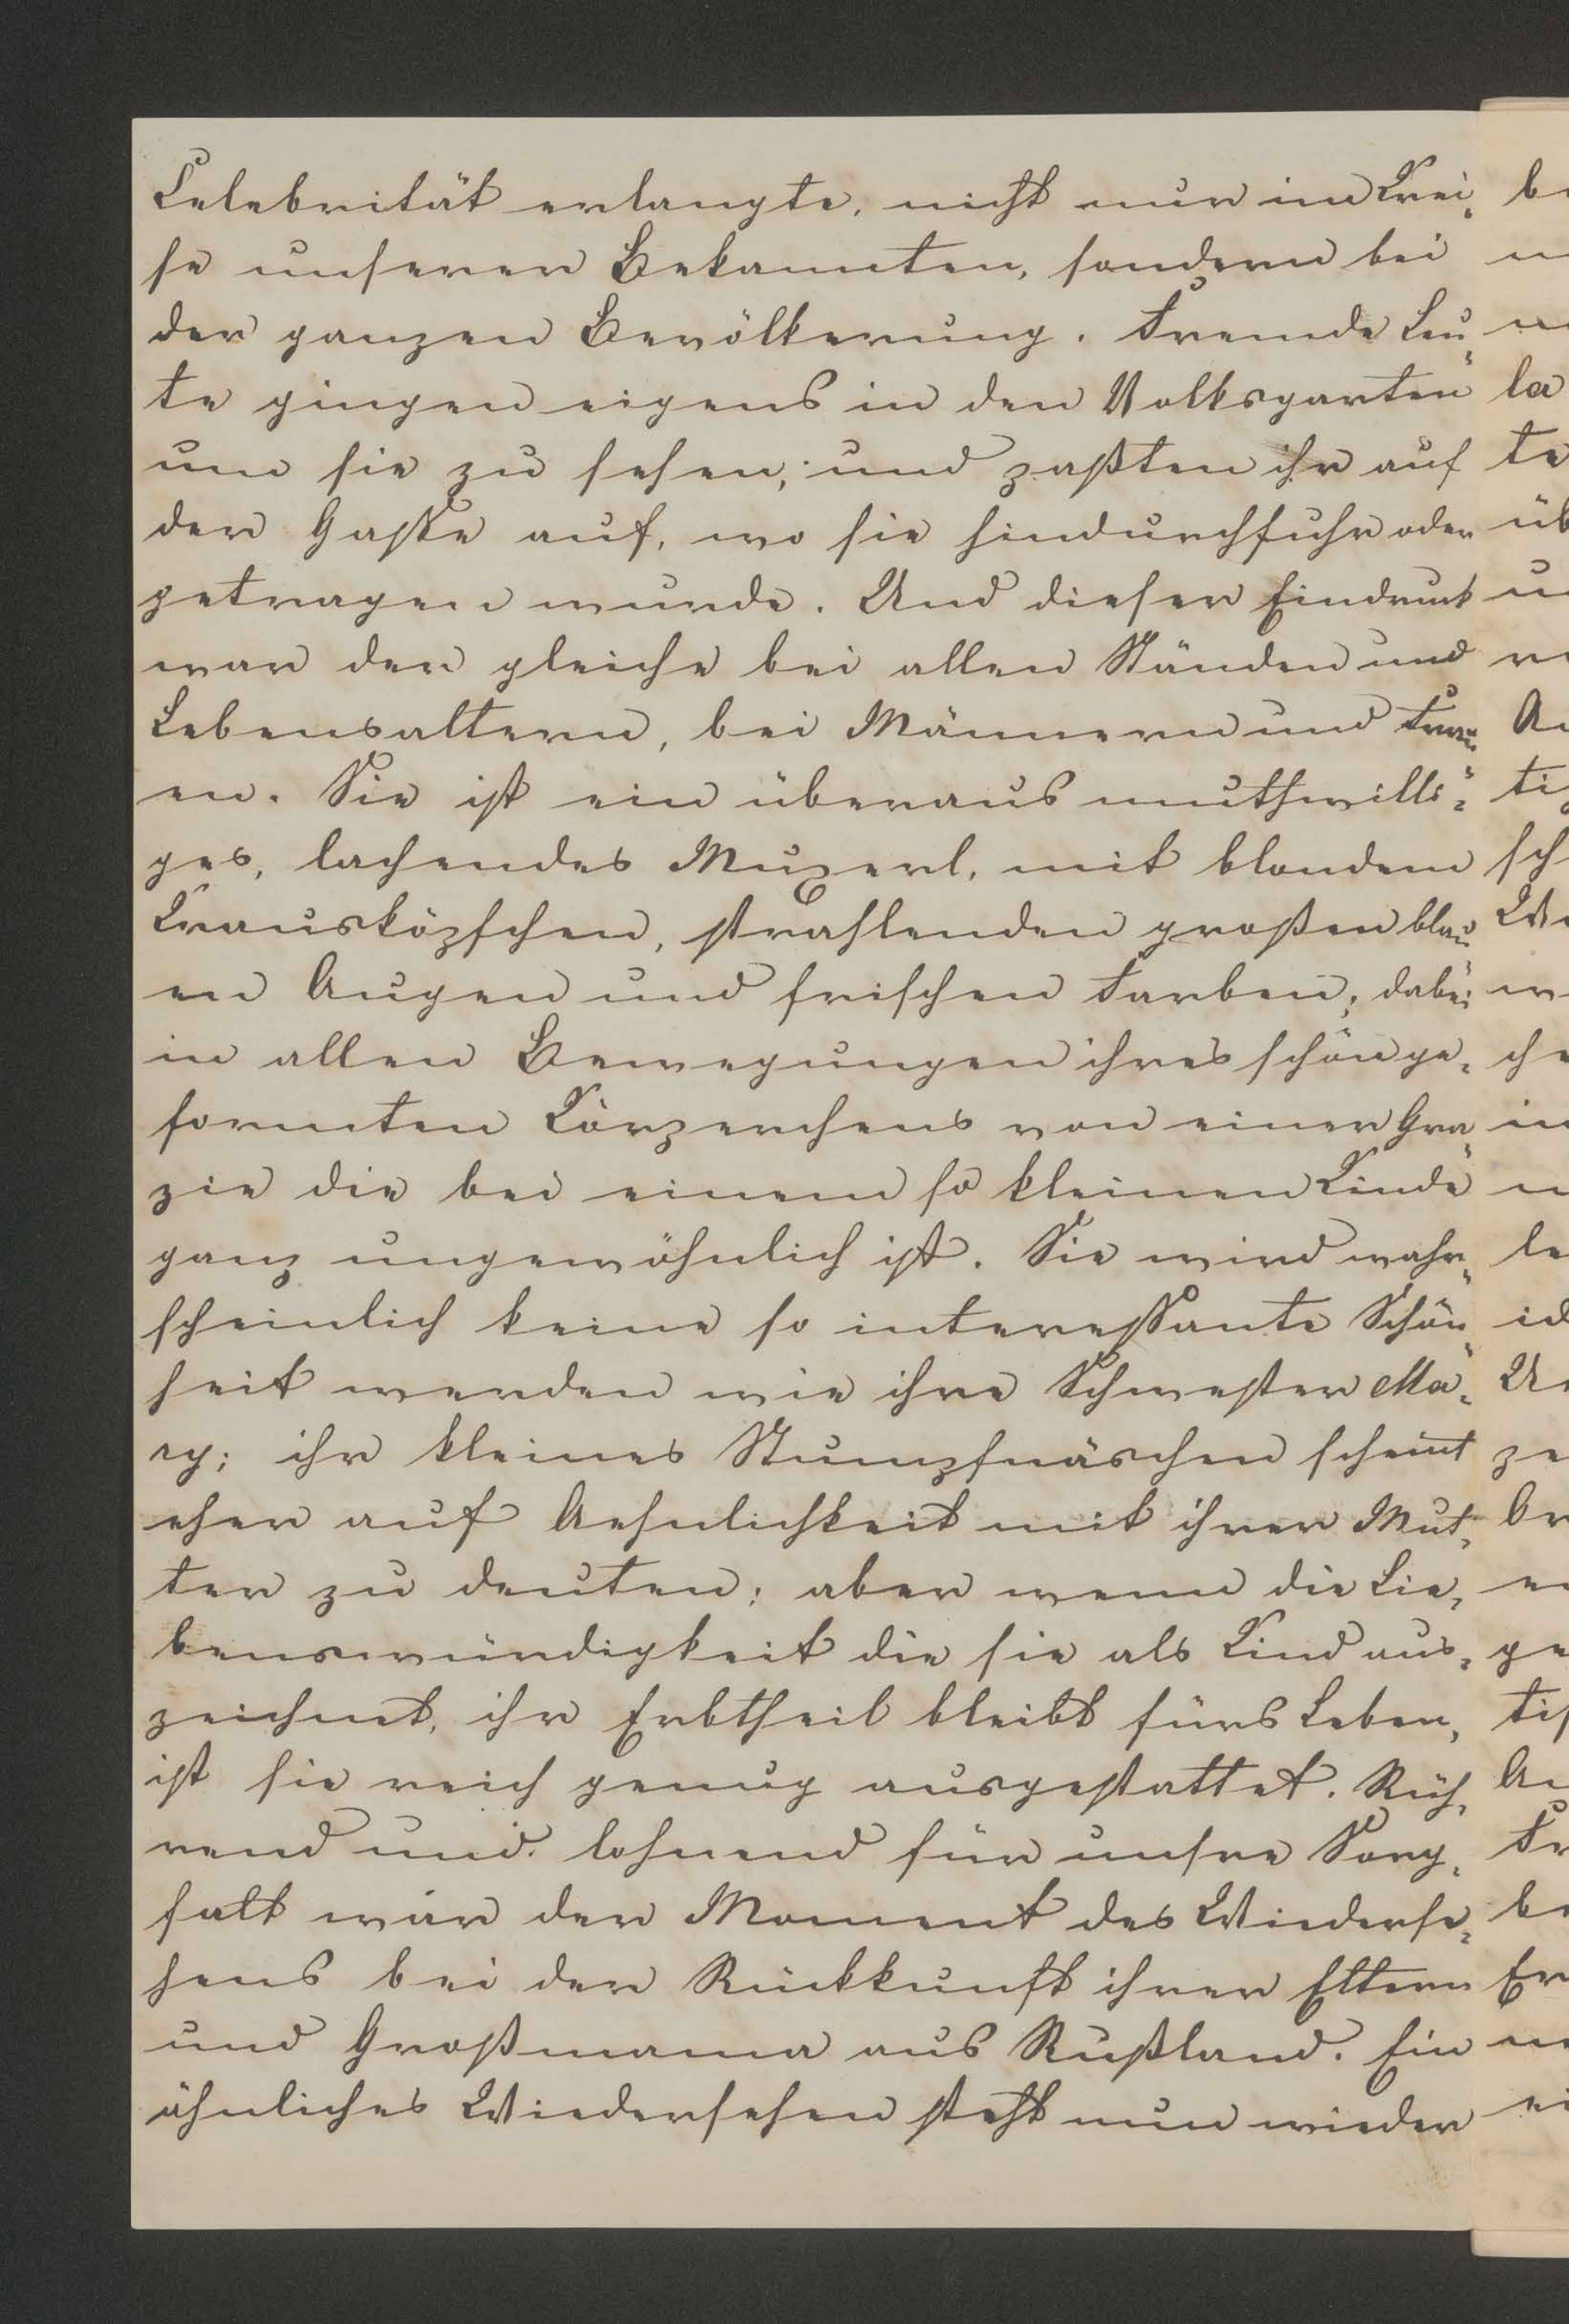 Celebrität erlangte, nicht nur im Krei¸
se unserer Bekannten, sondern bei
der ganzen Bevölkerung. Fremde Leu¸
te gingen eigens in den Volksgarten
um sie zu sehen; und paßten ihr auf
der Gasse auf, wo sie hindurchfuhr oder
getragen wurde. Und dieser Eindruck
war der gleiche bei allen Ständen und
Lebensaltern, bei Männern und Frau¸
en. Sie ist ein überaus muthwilli¸
ges, lachendes Muzerl, mit blondem
Krausköpfchen, strahlenden großen blau¸
en Augen und frischen Farben; dabei
in allen Bewegungen ihres schön ge¸
formten Körperchens von einer Gra¸
zie die bei einem so kleinen Kinde
ganz ungewöhnlich ist. Sie wird wahr¸
scheinlich keine so interessante Schön¸
heit werden wie ihre Schwester Ma¸
ry; ihr kleines Stumpfnäschen scheint
eher auf Aehnlichkeit mit ihrer Mut¸
ter zu deuten; aber wenn die Lie¸
benswürdigkeit die sie als Kind aus¸
zeichnet, ihr Erbtheil bleibt fürs Leben,
ist sie reich genug ausgestattet. Rüh¸
rend und lohnend für unsre Sorg¸
falt war der Moment des Wiederse¸
hens bei der Rückkunft ihrer Eltern
und Großmama aus Rußland. Ein
ähnliches Wiedersehen steht nun wieder